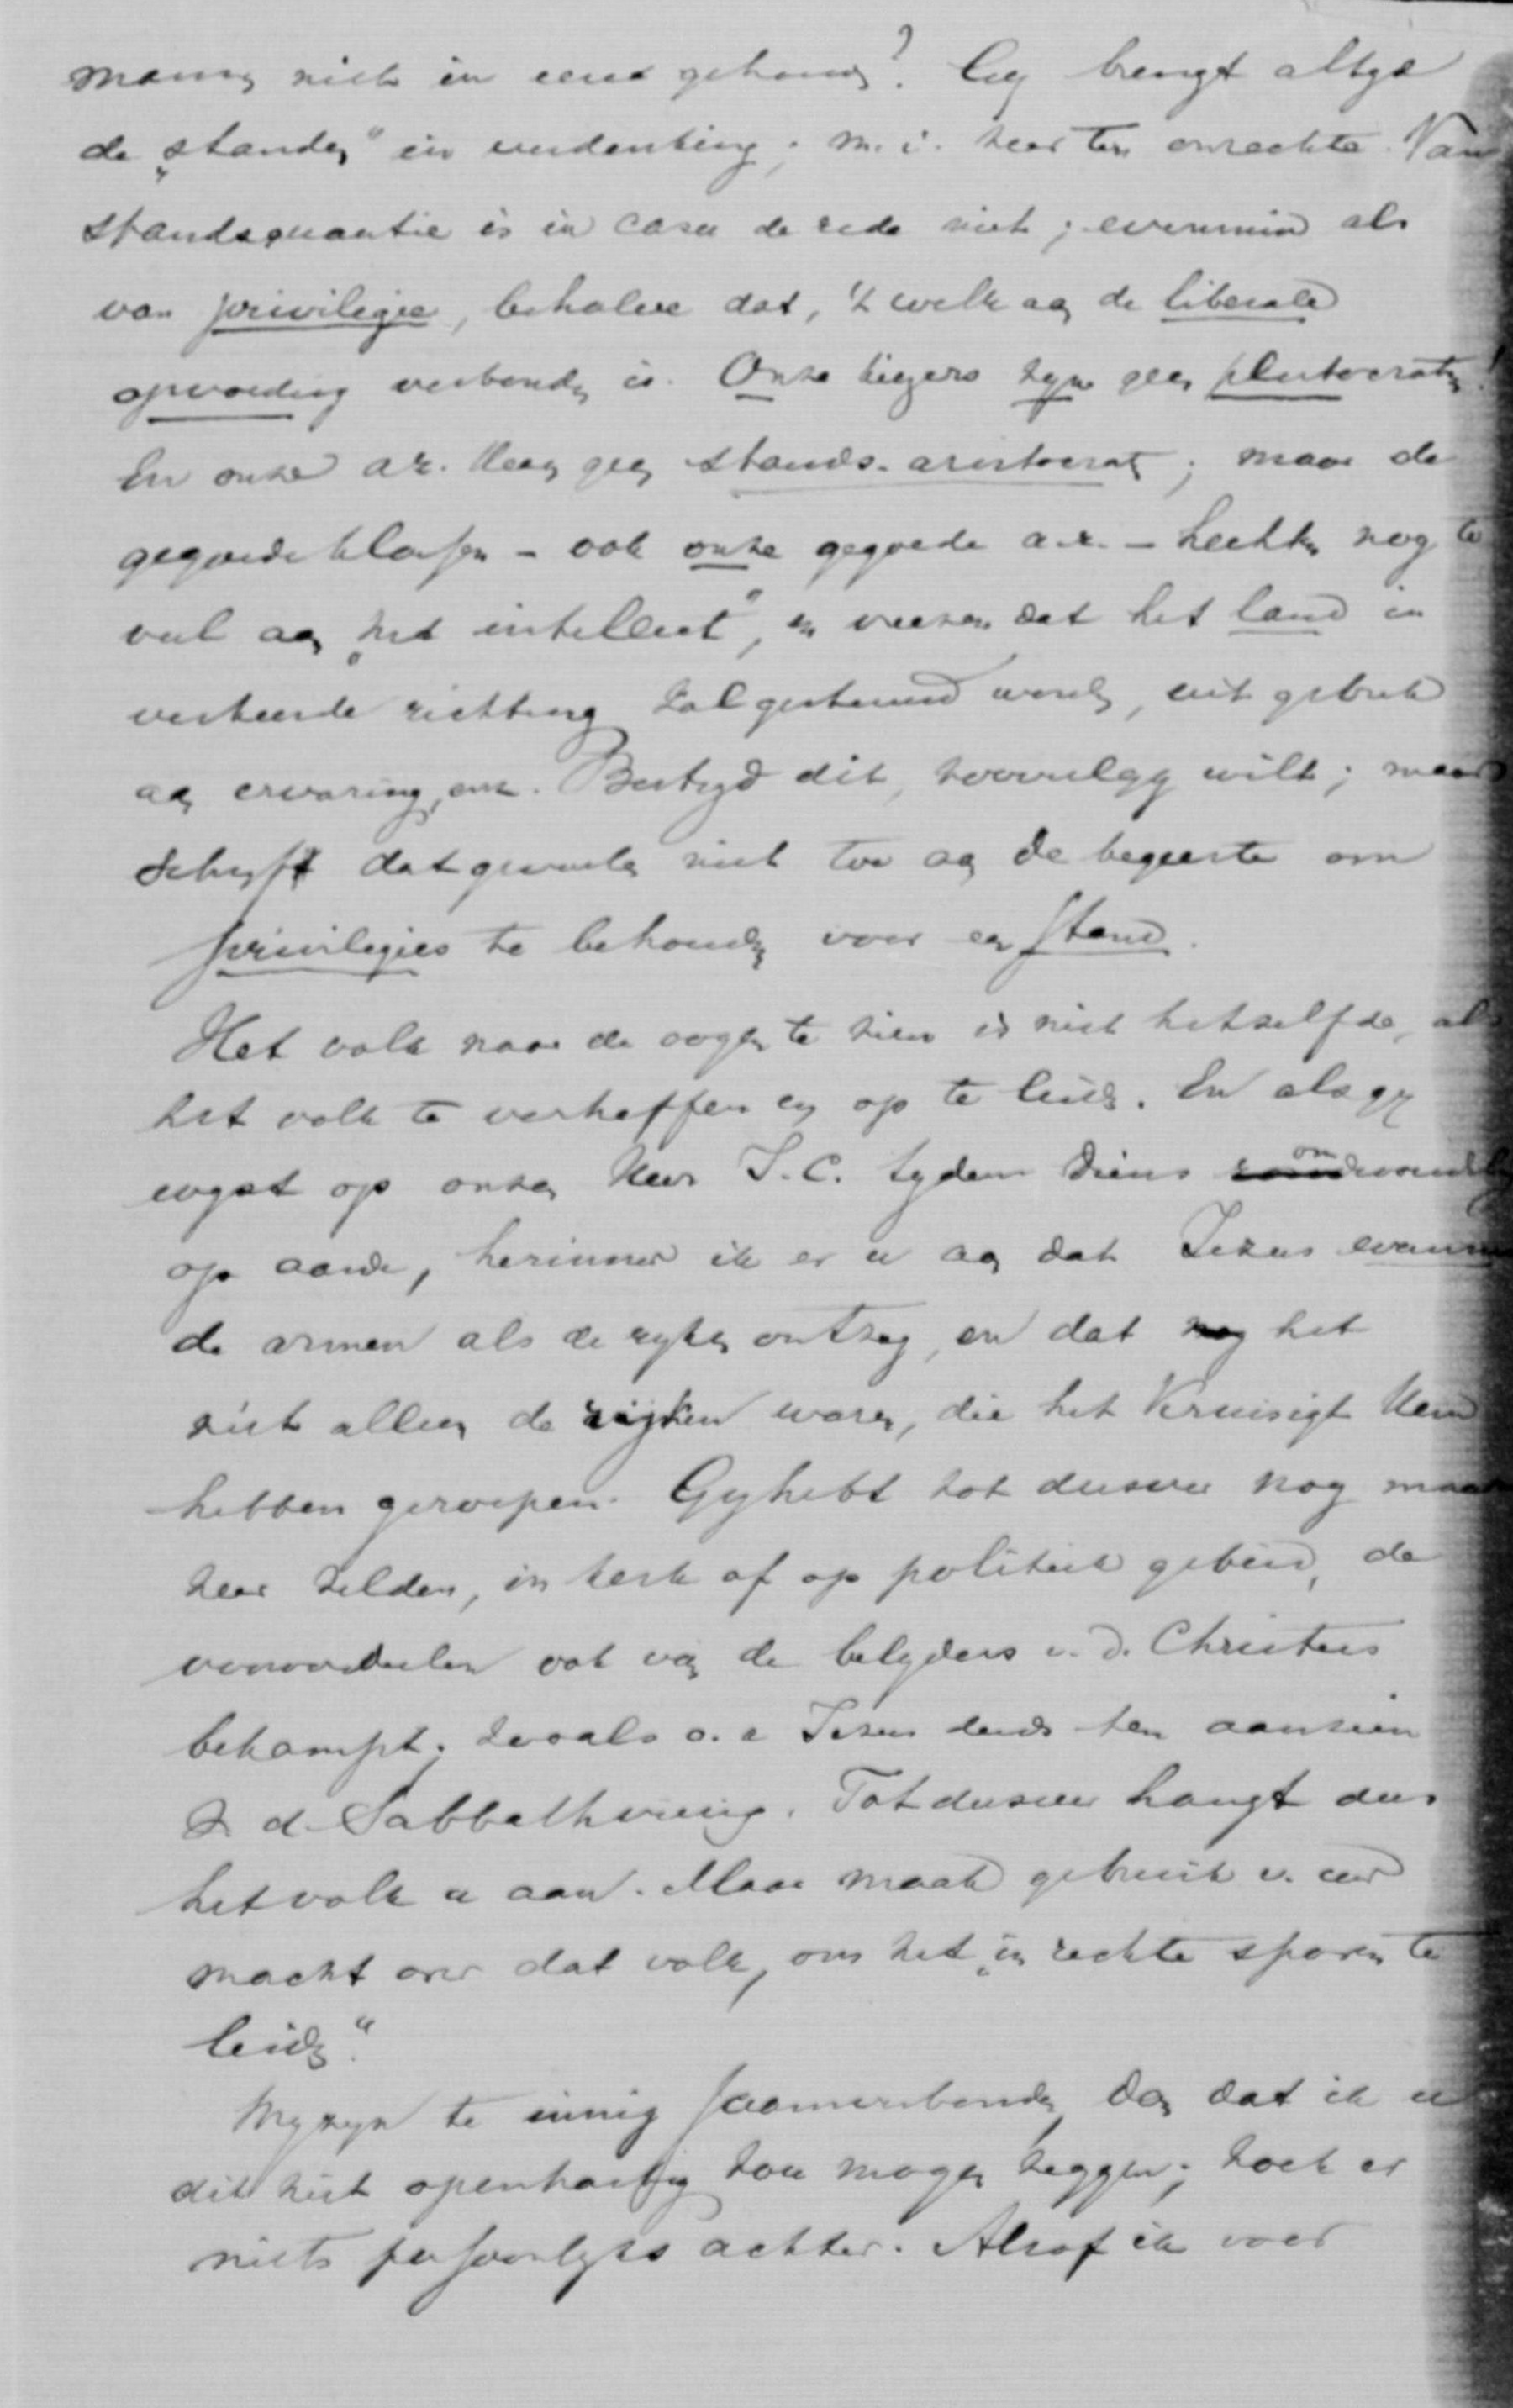 niet in eere gehouden? Gy brengt altyd
de „standen" in verdenking; m.i. zeer ten onrechte. Van
is in casu de rede niet; evenmin als
van privilegie, behalve dat, 't welk aan de liberale
opvoeding verbonden is. Onze liegers zyn geen plutocraten!
En onze a.r. Heeren geen stands-aristocraten; maar de
gegoede klassen - ook onze gegoede a.r. - hechten nog te
veel aan „het intellect", en vreezen dat het land in
verkeerde richting zal gestuurd worden, uit gebrek
aan ervaring, enz. Bestryd dit, zooveel gy wilt; maar
schryft dat gevoelen niet toe aan de begeerte om
privilegies te behouden voor een stand.
Het volk naar de oogen te zien is niet hetzelfde, als
het volk te verheffen en op te leiden. En als gy
wyst op onzen Heer J.C. tydens diens omwandeling
op aarde, herinner ik er u aan dat Jezus evenmin
de armen als de ryken ontzag, en dat het
niet alleen de rijken waren, die het Kruisigt Hem
hebben geroepen. Gy hebt tot dusver nog maar
zeer zelden, in kerk of op politiek gebied, de
vooroordeelen ook van de belyders v.d. Christus
bekampt; zooals o.a. Jezus deed ten aanzien
d. Sabbathviering. Tot dusver hangt dus
het volk u aan. Maar maak gebruik v. uw
macht over dat volk, om het „in rechte sporen te
leiden".
Wy zyn te innig saamverbonden, dan dat ik u
dit niet openhartig zou mogen zeggen; zoek er
niets persoonlyks achter. Alsof ik voor